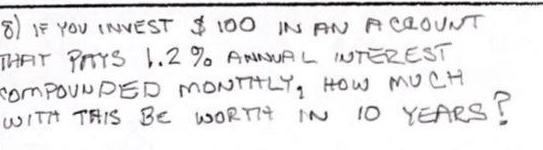 8) IF YOU INVEST $100 IN AN ACCOUNT
THAT PAYS 1.2% ANNUAL INTEREST
COMPOUNDED MONTHLY, HOW MUCH
WITH THIS BE WORTH IN 10 YEARS?